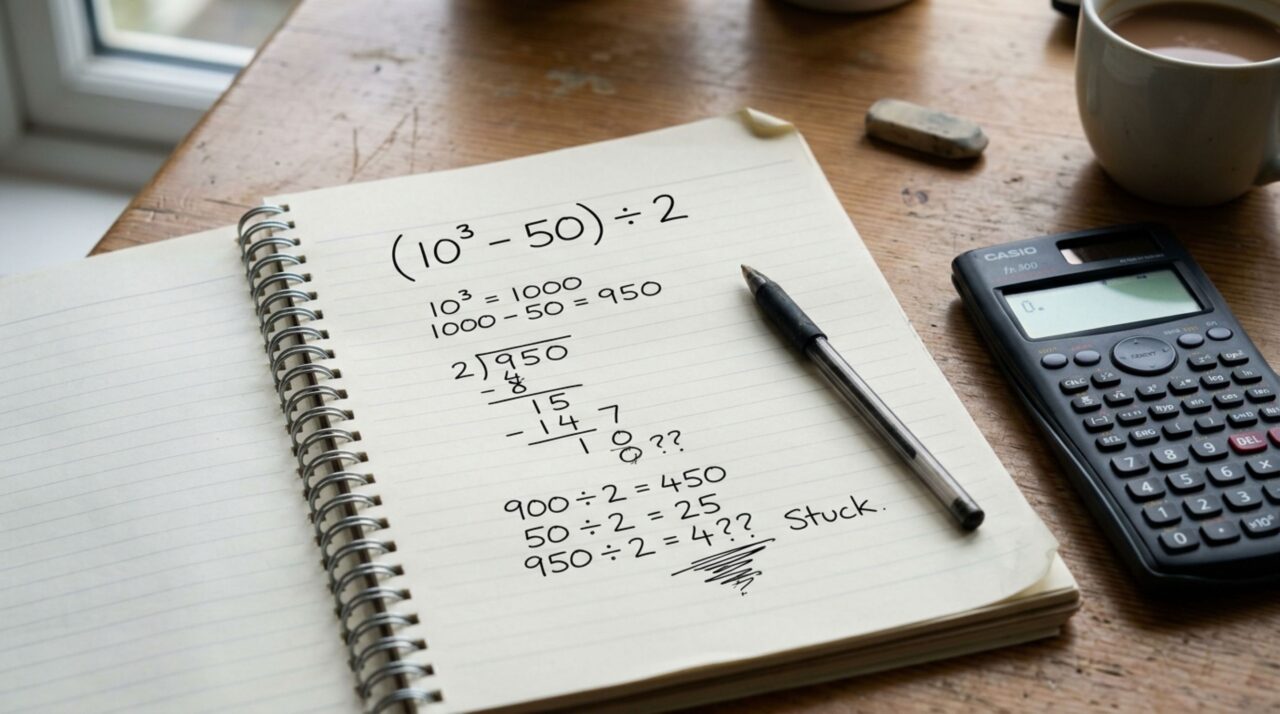 (10³ – 50) ÷ 2
10³ = 1000
1000 – 50 = 950
2)950
– 8
15
– 14 7
1 0
0 ??
900 ÷ 2 = 450
50 ÷ 2 = 25
950 ÷ 2 = 4?? Stuck.
CASIO
0.
DEL
7 8 9
4 5 6 x
1 2 3
0